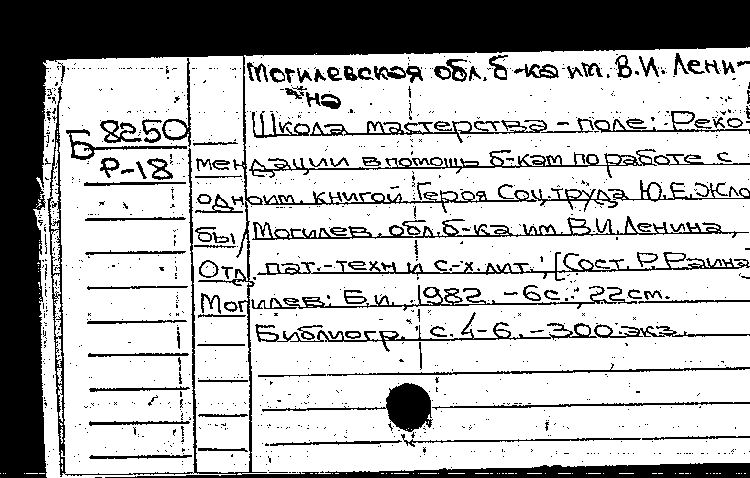 Могилевская обл. б-ка им. В.И. Лени-
на
Б 8250
Р-18
Школа мастерства - поле: Реко
мендации в помощь б-кам по работе с
одноим. книгой Героя Соц.труда Ю.Е.Жло
бы / Могилев. обл. б-ка им. В.И. Ленина,
Отд. пат.-техн и с.-х. лит.; [Сост. Р.Раина
Могилев: Б.и., 1982. - 6с.; 22см.
Библиогр. с. 4-6. - 300 экз.